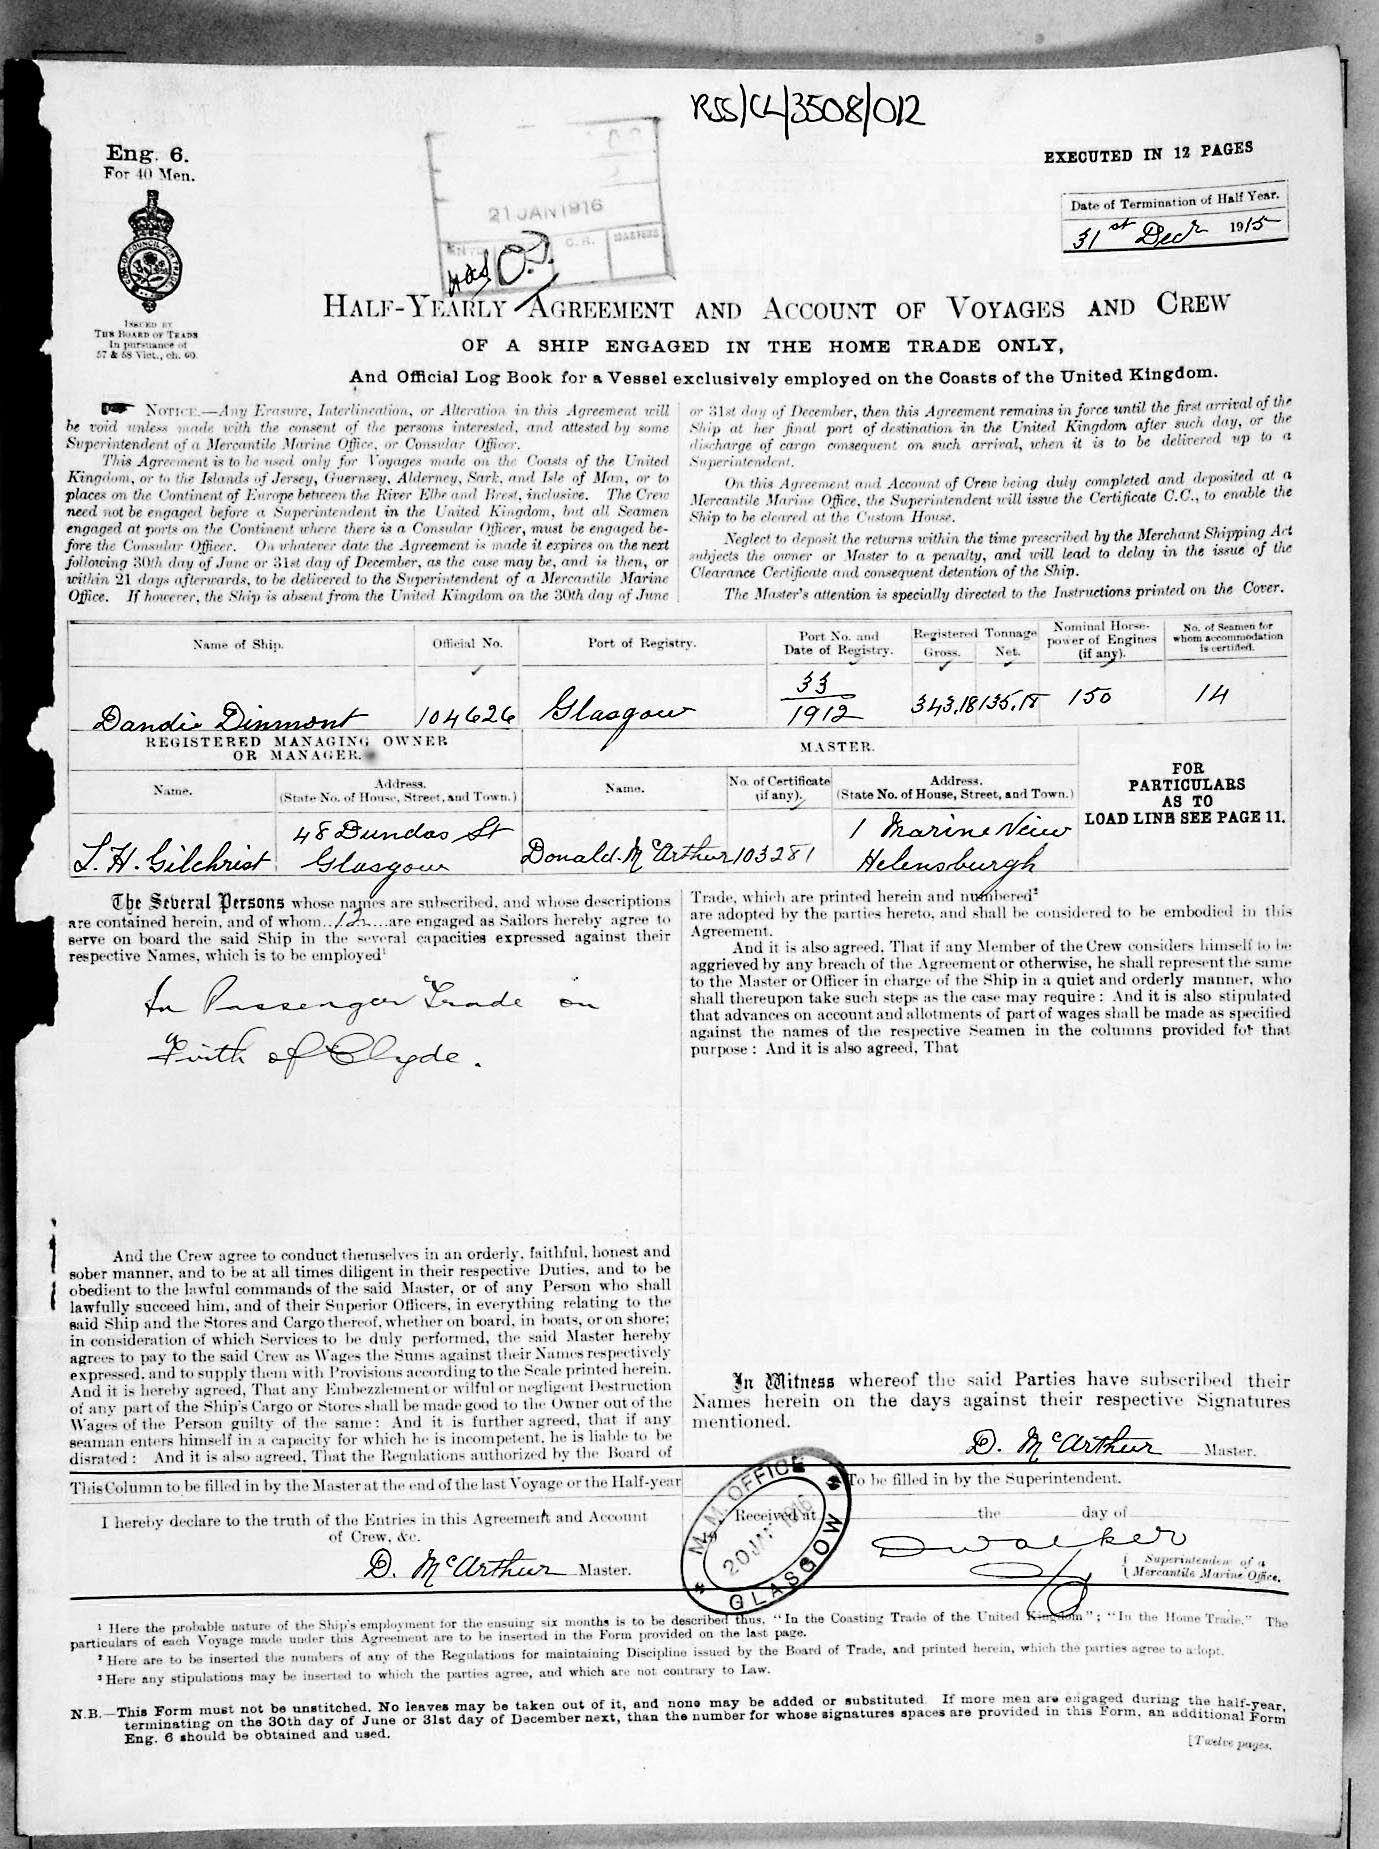 RSS/CL/3508/012
Eng. 6.
For 40 Men.
EXECUTED IN 12 PAGES
Date of Termination of Half Year.
31st Decr 1915
21 JAN 1916
C.R.
MASTERS
COM. OF COUNCIL FOR TRADE
ISSUED BY
THE BOARD OF TRADE
In pursuance of
57 & 58 Vict., ch. 60.
HALF-YEARLY AGREEMENT AND ACCOUNT OF VOYAGES AND CREW
OF A SHIP ENGAGED IN THE HOME TRADE ONLY,
And Official Log Book for a Vessel exclusively employed on the Coasts of the United Kingdom.
NOTICE.—Any Erasure, Interlineation, or Alteration in this Agreement will
be void unless made with the consent of the persons interested, and attested by some
Superintendent of a Mercantile Marine Office, or Consular Officer.
This Agreement is to be used only for Voyages made on the Coasts of the United
Kingdom, or to the Islands of Jersey, Guernsey, Alderney, Sark, and Isle of Man, or to
places on the Continent of Europe between the River Elbe and Brest, inclusive. The Crew
need not be engaged before a Superintendent in the United Kingdom, but all Seamen
engaged at ports on the Continent where there is a Consular Officer, must be engaged be-
fore the Consular Officer. On whatever date the Agreement is made it expires on the next
following 30th day of June or 31st day of December, as the case may be, and is then, or
within 21 days afterwards, to be delivered to the Superintendent of a Mercantile Marine
Office. If however, the Ship is absent from the United Kingdom on the 30th day of June
or 31st day of December, then this Agreement remains in force until the first arrival of the
Ship at her final port of destination in the United Kingdom after such day, or the
discharge of cargo consequent on such arrival, when it is to be delivered up to a
Superintendent.
On this Agreement and Account of Crew being duly completed and deposited at a
Mercantile Marine Office, the Superintendent will issue the Certificate C.C., to enable the
Ship to be cleared at the Custom House.
Neglect to deposit the returns within the time prescribed by the Merchant Shipping Act
subjects the owner or Master to a penalty, and will lead to delay in the issue of the
Clearance Certificate and consequent detention of the Ship.
The Master's attention is specially directed to the Instructions printed on the Cover.
Name of Ship. Official No. Port of Registry. Port No. and Date of Registry. Registered Tonnage Gross. Net. Nominal Horse-power of Engines (if any). No. of Seamen for whom accommodation is certified.
Dandie Dinmont 104626 Glasgow 33/1912 343.18 135.18 150 14
REGISTERED MANAGING OWNER
OR MANAGER.
MASTER.
FOR
PARTICULARS
AS TO
LOAD LINE SEE PAGE 11.
Name. Address. (State No. of House, Street, and Town.) Name. No. of Certificate (if any). Address. (State No. of House, Street, and Town.)
L. H. Gilchrist 48 Dundas St Glasgow Donald McArthur 103281 1 Marine View Helensburgh
The Several Persons whose names are subscribed, and whose descriptions
are contained herein, and of whom 12 are engaged as Sailors hereby agree to
serve on board the said Ship in the several capacities expressed against their
respective Names, which is to be employed¹
In Passenger Trade on
Firth of Clyde.
And the Crew agree to conduct themselves in an orderly, faithful, honest and
sober manner, and to be at all times diligent in their respective Duties, and to be
obedient to the lawful commands of the said Master, or of any Person who shall
lawfully succeed him, and of their Superior Officers, in everything relating to the
said Ship and the Stores and Cargo thereof, whether on board, in boats, or on shore;
in consideration of which Services to be duly performed, the said Master hereby
agrees to pay to the said Crew as Wages the Sums against their Names respectively
expressed, and to supply them with Provisions according to the Scale printed herein.
And it is hereby agreed, That any Embezzlement or wilful or negligent Destruction
of any part of the Ship's Cargo or Stores shall be made good to the Owner out of the
Wages of the Person guilty of the same: And it is further agreed, that if any
seaman enters himself in a capacity for which he is incompetent, he is liable to be
disrated: And it is also agreed, That the Regulations authorized by the Board of
Trade, which are printed herein and numbered²
are adopted by the parties hereto, and shall be considered to be embodied in this
Agreement.
And it is also agreed, That if any Member of the Crew considers himself to be
aggrieved by any breach of the Agreement or otherwise, he shall represent the same
to the Master or Officer in charge of the Ship in a quiet and orderly manner, who
shall thereupon take such steps as the case may require: And it is also stipulated
that advances on account and allotments of part of wages shall be made as specified
against the names of the respective Seamen in the columns provided for that
purpose: And it is also agreed, That
In Witness whereof the said Parties have subscribed their
Names herein on the days against their respective Signatures
mentioned.
D. McArthur Master.
This Column to be filled in by the Master at the end of the last Voyage or the Half-year
I hereby declare to the truth of the Entries in this Agreement and Account
of Crew, &c.
D. McArthur Master.
To be filled in by the Superintendent.
Received at
the day of
M. M. OFFICE
20 JAN 1916
GLASGOW
D Walker
Superintendent of a
Mercantile Marine Office.
¹ Here the probable nature of the Ship's employment for the ensuing six months is to be described thus, "In the Coasting Trade of the United Kingdom"; "In the Home Trade." The
particulars of each Voyage made under this Agreement are to be inserted in the Form provided on the last page.
² Here are to be inserted the numbers of any of the Regulations for maintaining Discipline issued by the Board of Trade, and printed herein, which the parties agree to adopt.
³ Here any stipulations may be inserted to which the parties agree, and which are not contrary to Law.
N.B.—This Form must not be unstitched. No leaves may be taken out of it, and none may be added or substituted. If more men are engaged during the half-year,
terminating on the 30th day of June or 31st day of December next, than the number for whose signatures spaces are provided in this Form, an additional Form
Eng. 6 should be obtained and used.
[Twelve pages.